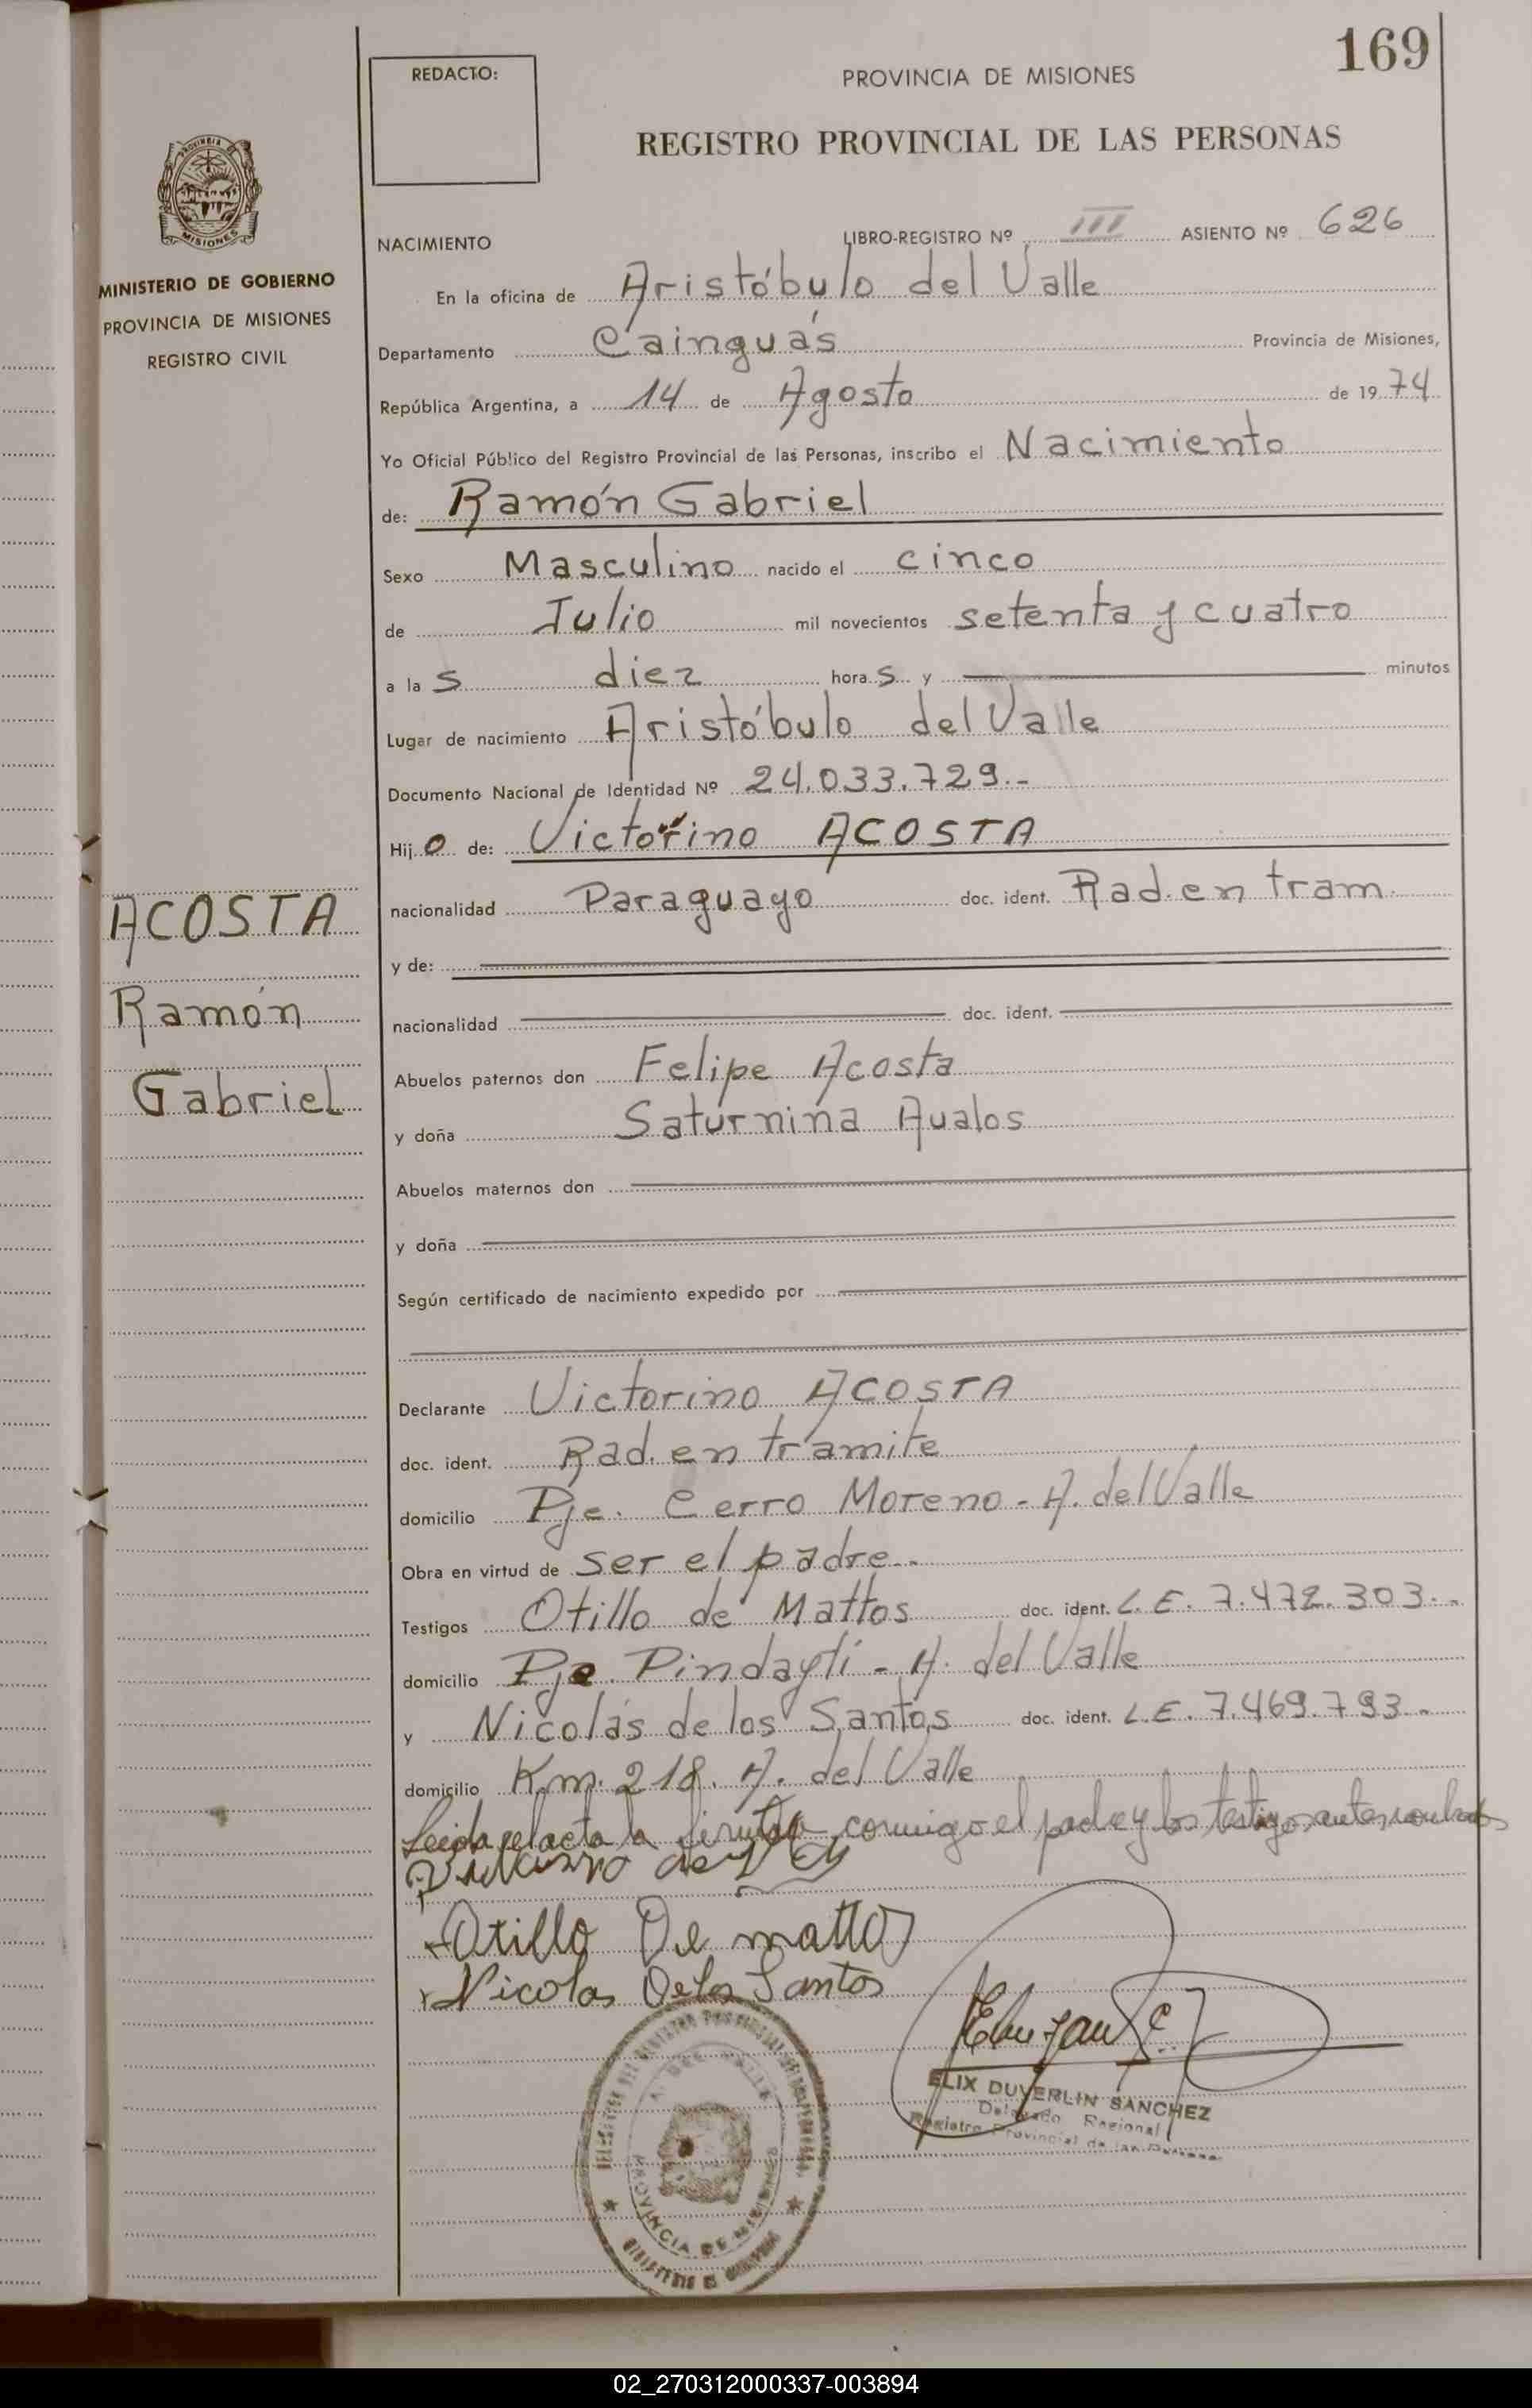 169
REDACTO:
PROVINCIA DE MISIONES
REGISTRO PROVINCIAL DE LAS PERSONAS
MISIONES
MINISTERIO DE GOBIERNO
PROVINCIA DE MISIONES
REGISTRO CIVIL
NACIMIENTO LIBRO-REGISTRO Nº III ASIENTO Nº 626
En la oficina de Aristóbulo del Valle
Departamento Cainguás Provincia de Misiones,
República Argentina, a 14 de Agosto de 1974
Yo Oficial Público del Registro Provincial de las Personas, inscribo el Nacimiento
de: Ramón Gabriel
Sexo Masculino nacido el cinco
de Julio mil novecientos setenta y cuatro
a las diez horas y minutos
Lugar de nacimiento Aristóbulo del Valle
Documento Nacional de Identidad Nº 24.033.729.-
Hijo de: Victorino ACOSTA
nacionalidad Paraguayo doc. ident. Rad. en tram.
y de:
nacionalidad doc. ident.
ACOSTA
Ramón
Gabriel
Abuelos paternos don Felipe Acosta
y doña Saturnina Avalos
Abuelos maternos don
y doña
Según certificado de nacimiento expedido por
Declarante Victorino ACOSTA
doc. ident. Rad. en trámite
domicilio Pje. Cerro Moreno - A. del Valle
Obra en virtud de ser el padre.-
Testigos Otillo de Mattos doc. ident. L.E. 7.472.303.-
domicilio Pje. Pindaytí - A. del Valle
y Nicolás de los Santos doc. ident. L.E. 7.469.793.-
domicilio Km. 218. A. del Valle
Leida el acta la conmigo el padre y los testigos antes
Otillo De mattos
Nicolas De los Santos
ELIX DUVERLIN SANCHEZ
Delegado Regional
Registro Provincial de las Personas
A. DEL VALLE
PROVINCIA DE MISIONES
02_270312000337-003894